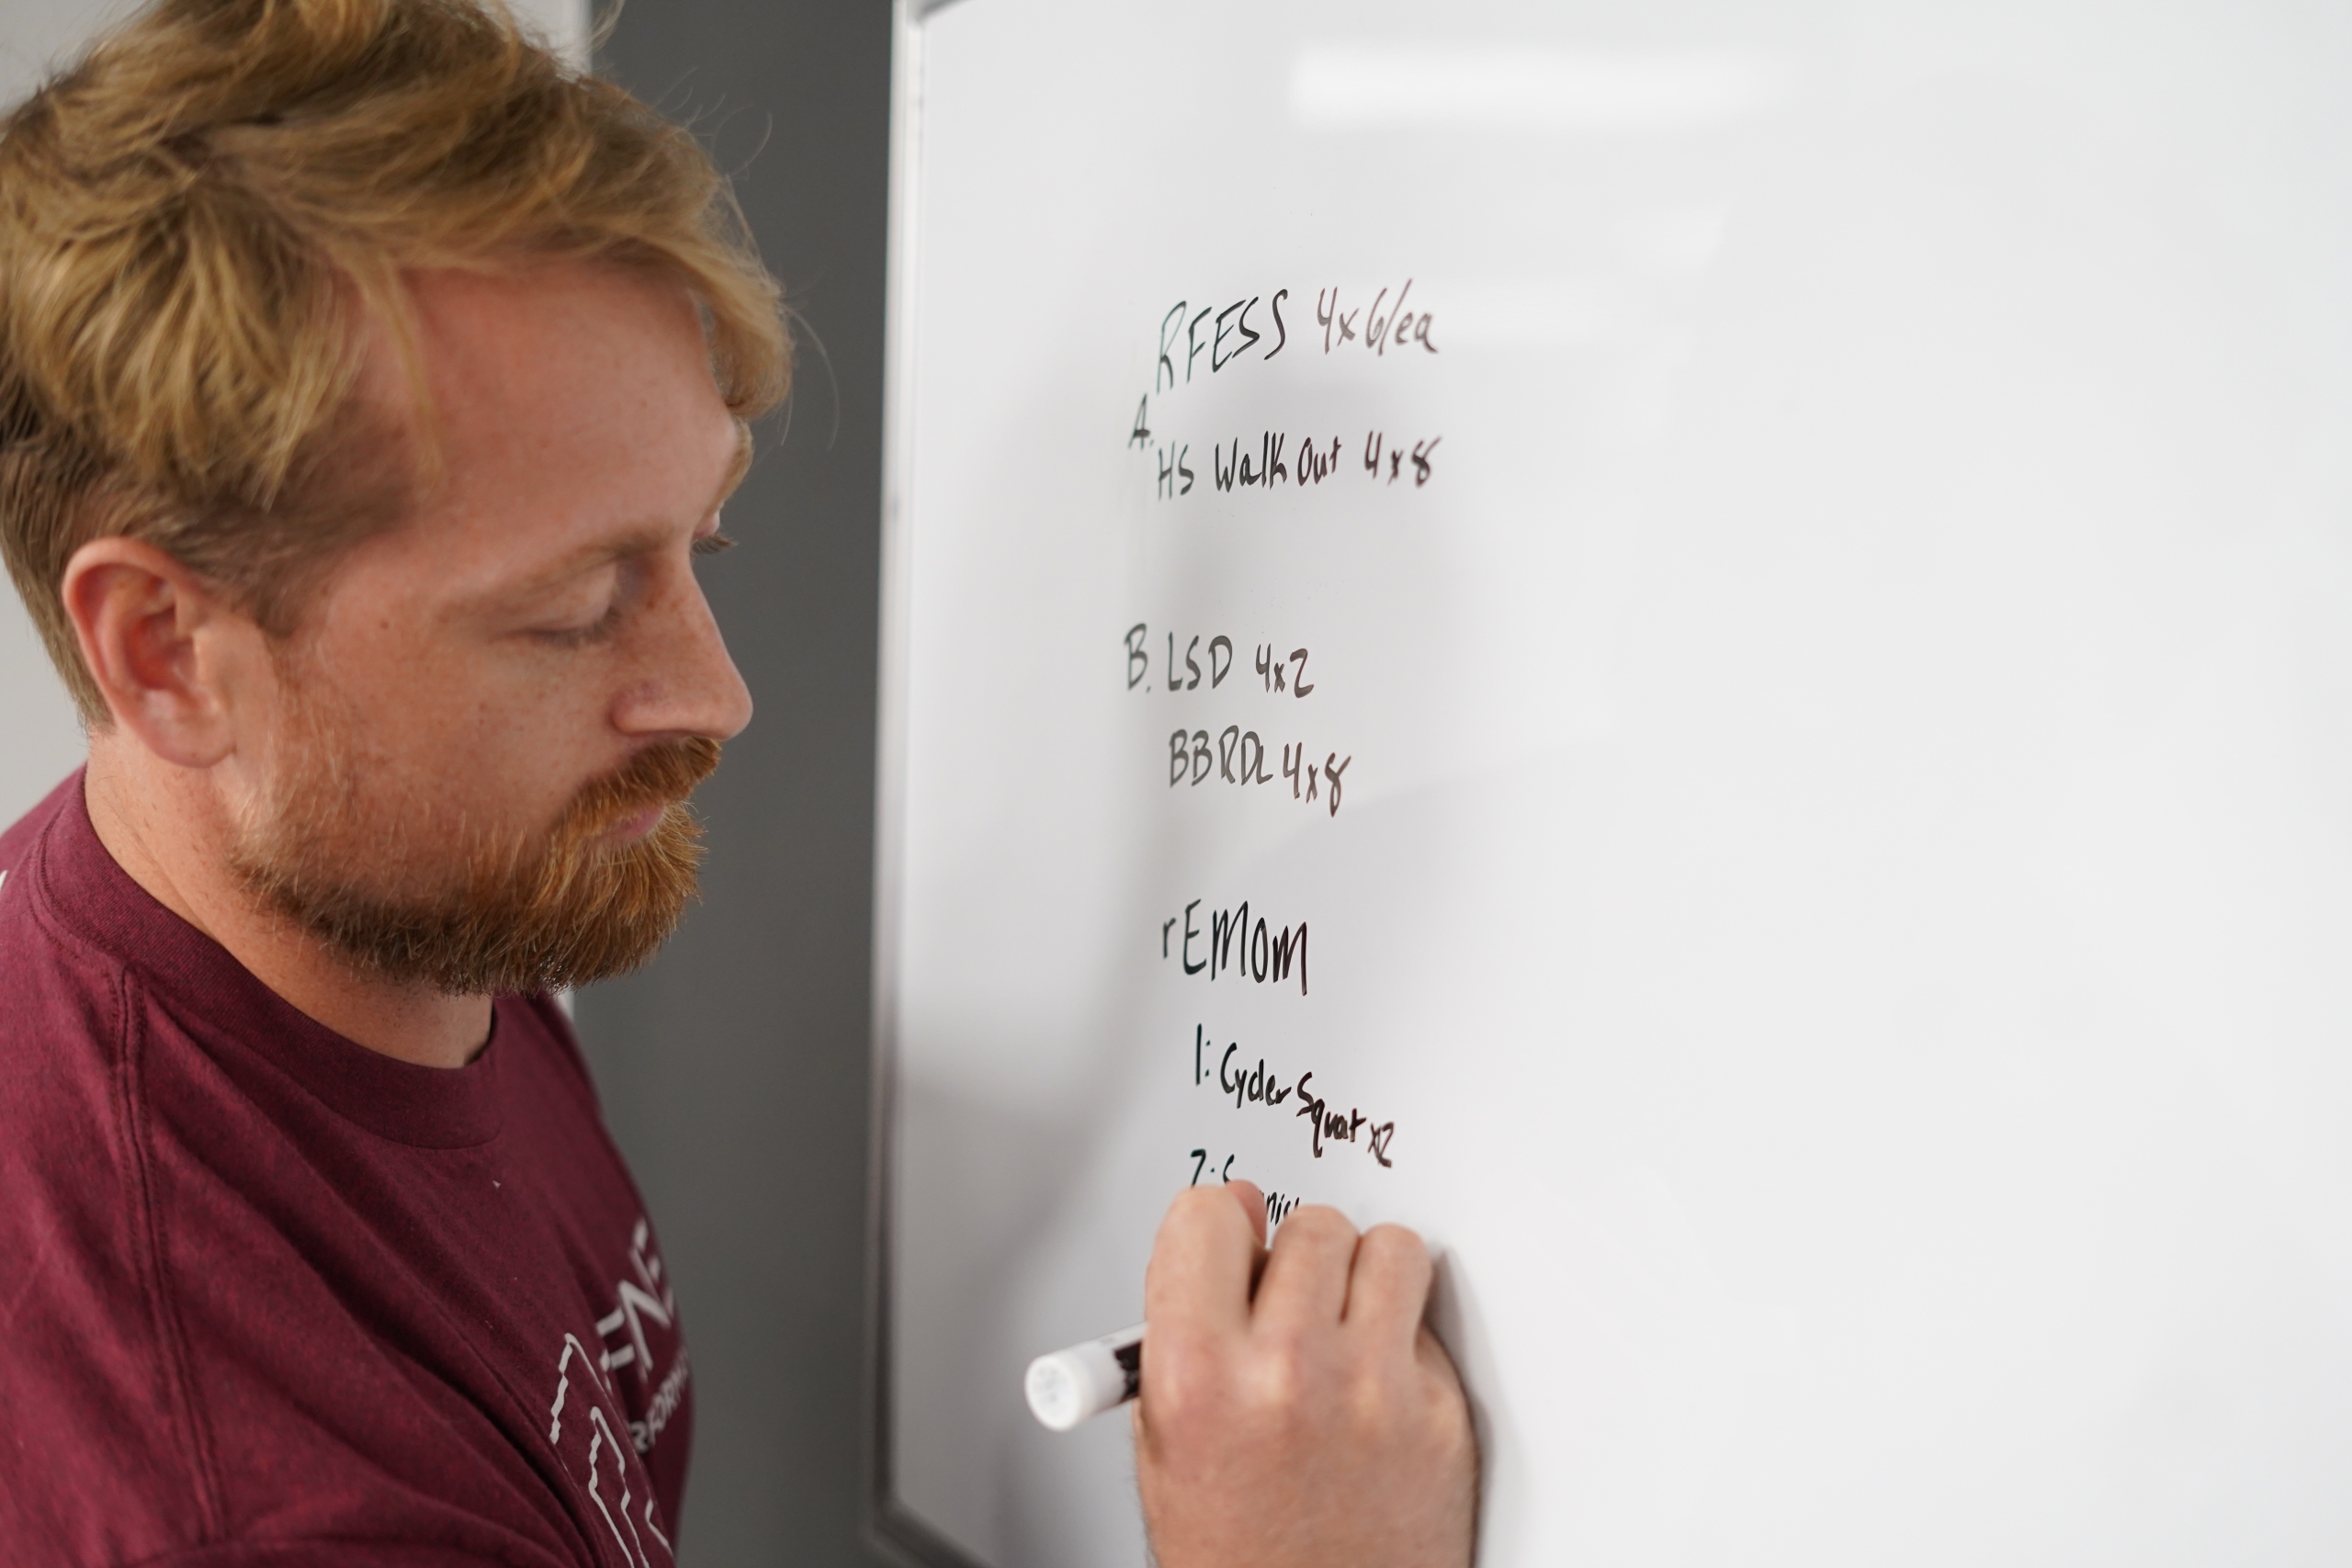 RFESS 4x6/ea
A.
HS Walk Out 4x8
B. LSD 4x2
BBRDL 4x8
rEMOM
1: Cycler Squat x12
2: